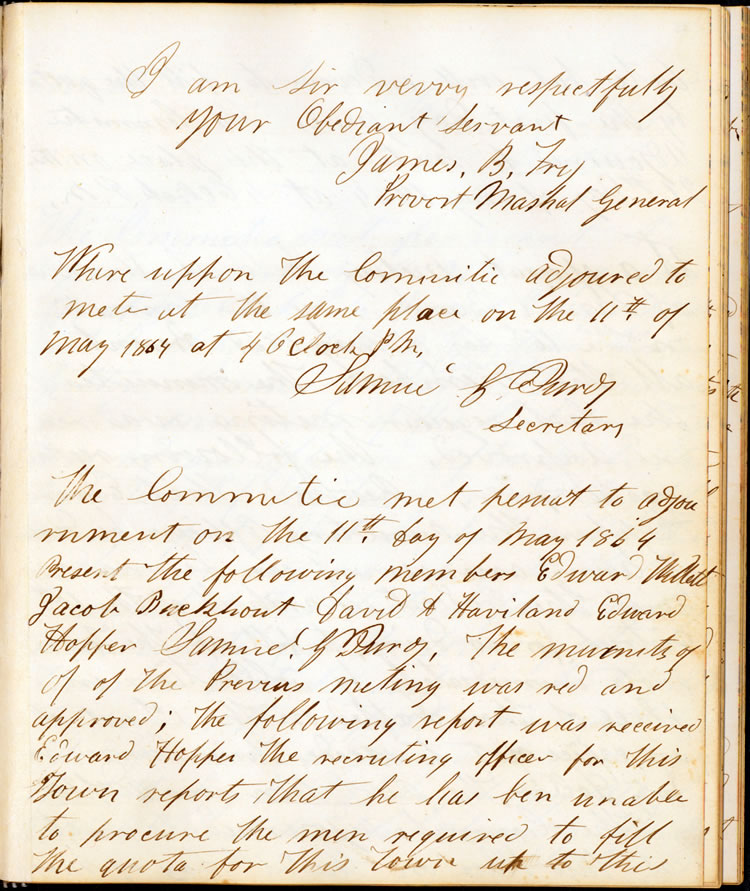 I am Sir verry respectfully
your Obediant Servant
James, B, Fry
Provort Mashal General
Where uppon the Committie adjoured to
mete at the same place on the 11th of
May 1864 at 4 OClock P M,
Samuel G. Purdy
Secretary
The Committie met persuat to adjou
rnment on the 11th day of May 1864
Present the following members Edward
Jacob Buckhout David A Haviland Edward
Hopper Samuel G Purdy, The
of of the Previus meting was red and
approved; the following report was received
Edward Hopper the recruting officer for this
Town reports, that he has ben unable
to procure the men required to fill
the quota for this Town up to this